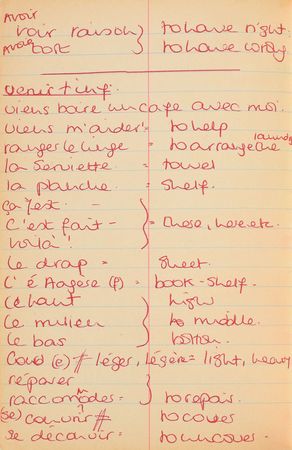 avoir
voir raison } to have right.
avoir tort } to have wrong
venir + inf.
viens boire un cafe avec moi.
viens m'aider = to help
ranger le linge = to arrange the laundry
la serviette = towel
la planche = shelf.
ça y est. -
C'est fait - } = these, here etc.
voilà!
le drap = sheet.
L'é (f) = book-shelf.
Le haut } high
Le milieu } to middle.
Le bas } bottom.
(e) # léger, légère = light, heavy
réparer
raccomodes = } to repair.
(se) couvrir # to covers
se découvrir = to uncovers.